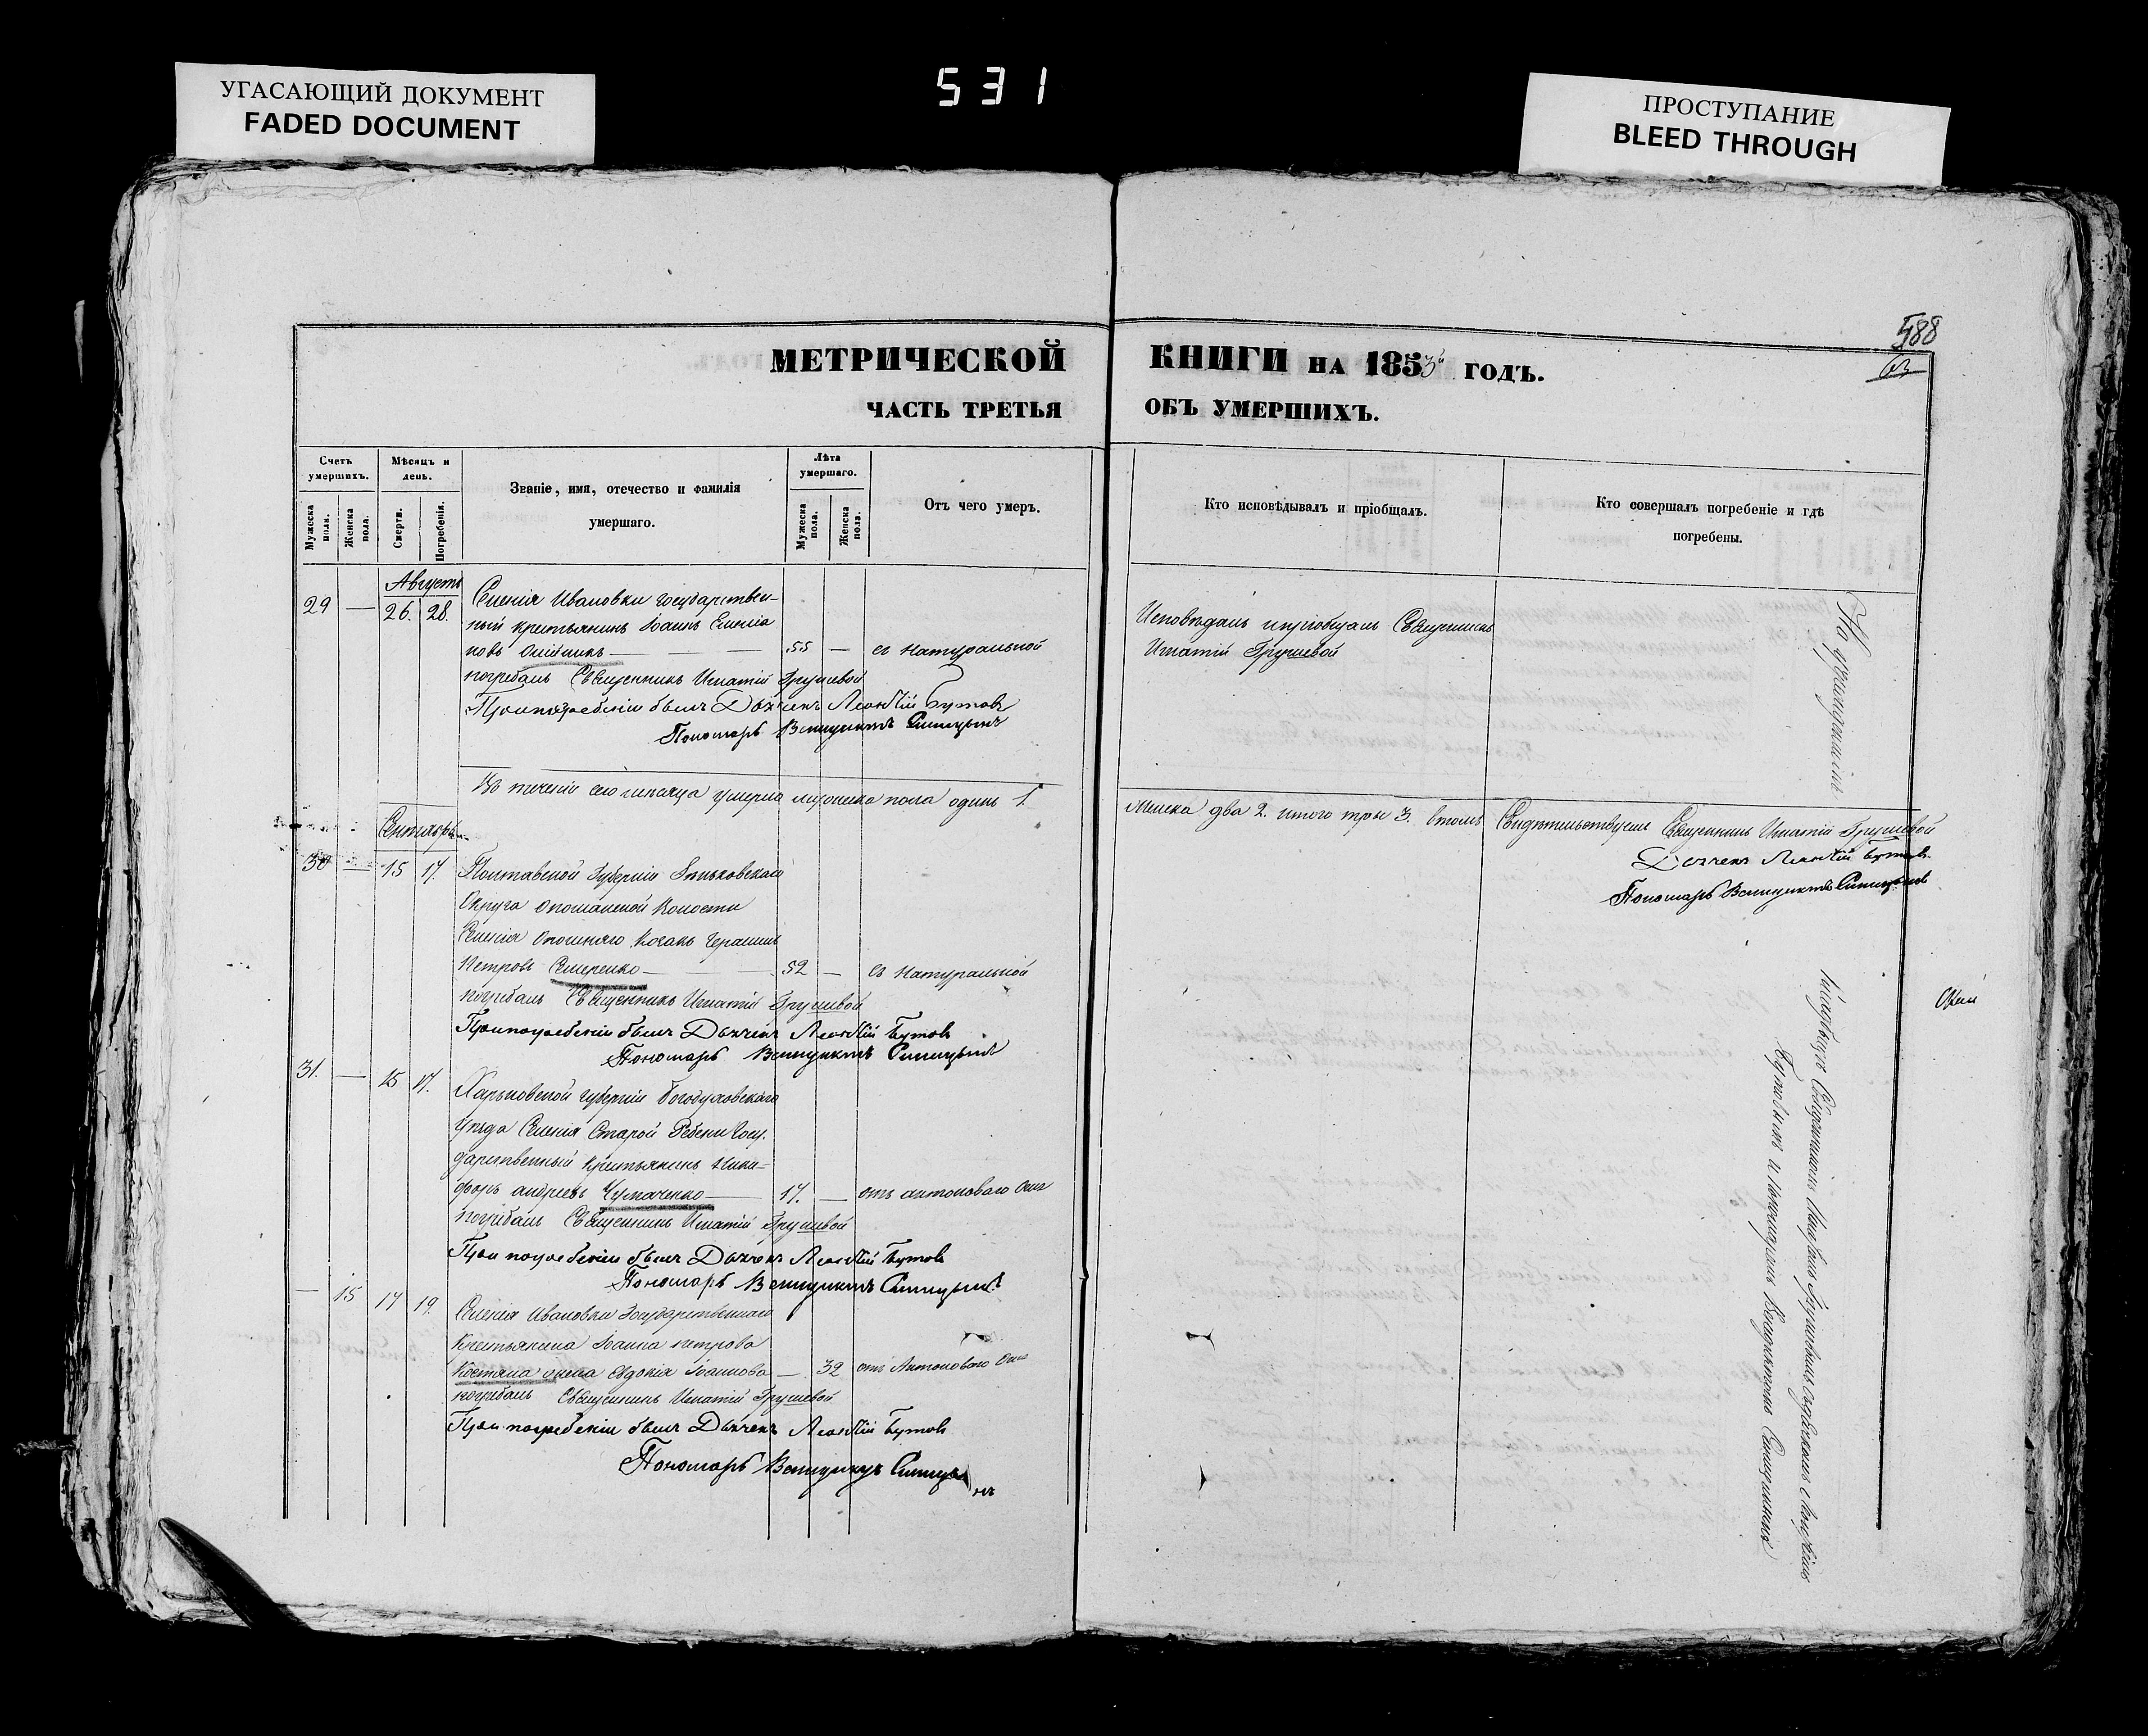 УГАСАЮЩИЙ ДОКУМЕНТ
FADED DOCUMENT
531
ПРОСТУПАНИЕ
BLEED THROUGH
488
63
МЕТРИЧЕСКОЙ КНИГИ НА 1853й ГОДЪ.
ЧАСТЬ ТРЕТЬЯ ОБЪ УМЕРШИХЪ.
Счетъ умершихъ.
Мужеска полн.
Женска пола.
Мѣсяцъ и день.
Смерти.
Погребенія.
Званіе, имя, отечество и фамилія умершаго.
Лѣта умершаго.
Мужеска пола.
Женска пола.
Отъ чего умеръ.
Кто исповѣдывалъ и пріобщалъ.
Кто совершалъ погребеніе и гдѣ погребены.
Августъ
29 — 26. 28. Селенія Ивановки государствен-
ный крестьянинъ Іоаннъ
новъ 55 — съ натуральной
погребалъ Священникъ Игнатій Грушевой
При погребеніи былъ Дьячекъ Леонтій Бутовъ
Пономарь Венидиктъ Синицынъ
Исповѣдалъ и пріобщалъ Священникъ
Игнатій Грушевой
Въ теченіи сего мѣсяца умерло мужеска пола одинъ 1.
женска два 2. итого три 3. въ томъ свидѣтельствуемъ Священникъ Игнатій Грушевой
Дьячекъ Леонтій Бутовъ
Пономарь Венидиктъ Синицынъ
Сентябрь
30 — 15 17. Полтавской Губерніи Зѣньковскаго
Округа Опошанской Волости
Селенія Опошняго Козакъ Герасимъ
Петровъ Семеренко — 52 — съ натуральной
погребалъ Священникъ Игнатій Грушевой
При погребеніи былъ Дьячекъ Леонтій Бутовъ
Пономарь Венидиктъ Синицынъ
31. — 15 17. Харьковской Губерніи Богодуховскаго
уѣзда Селенія Старой Рябени Госу-
дарственный крестьянинъ Ники-
форъ Андреевъ Чумаченко — 17. — отъ антоноваго огня
погребалъ Священникъ Игнатій Грушевой
При погребеніи былъ Дьячекъ Леонтій Бутовъ
Пономарь Венидиктъ Синицынъ
— 15 17 19. Селенія Ивановки Государственнаго
Крестьянина Іоанна Петрова
Костяна жена Евдокія Іоаннова — 32 отъ Антоноваго Огня
погребалъ Священникъ Игнатій Грушевой
При погребеніи былъ Дьячекъ Леонтій Бутовъ
Пономарь Венидиктъ Синицынъ